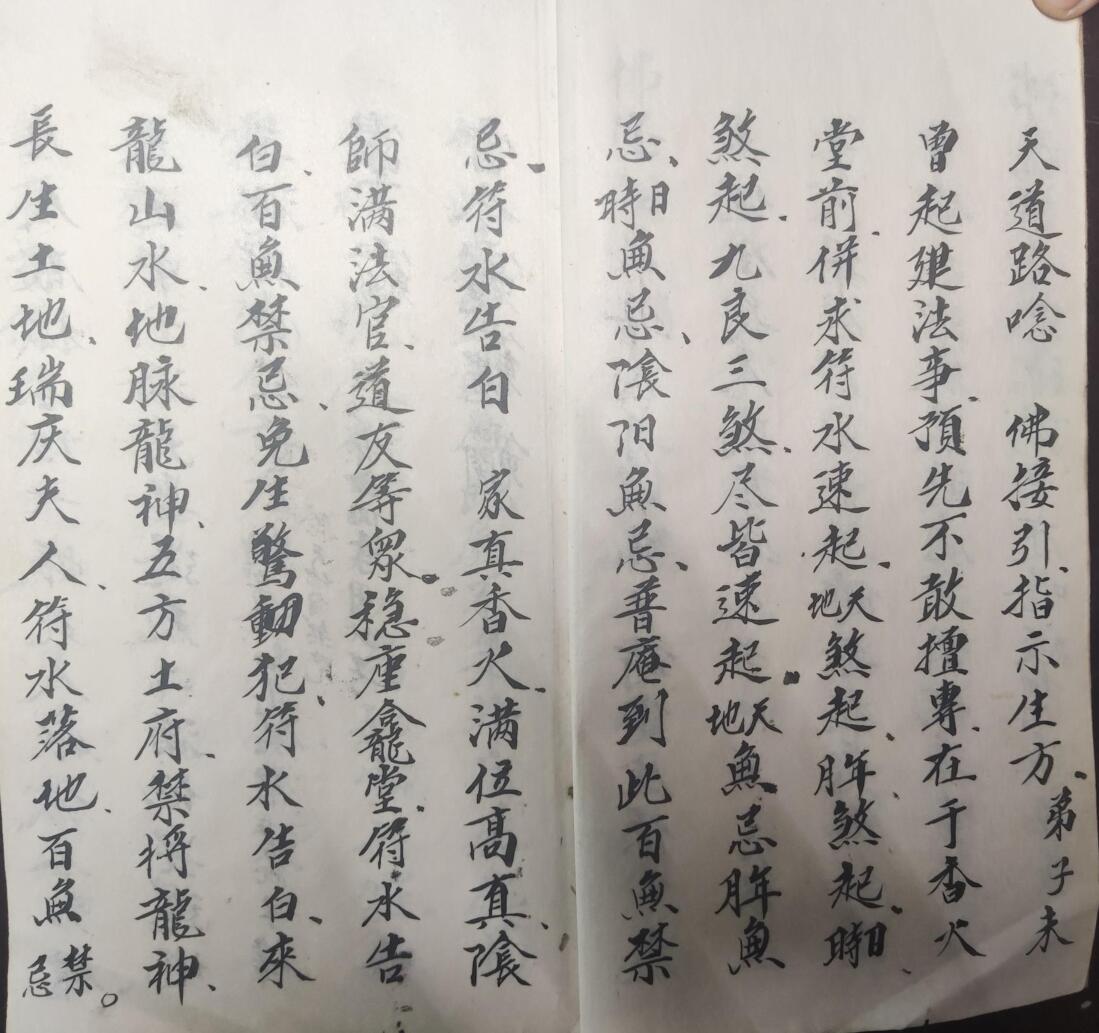 天道路唸　佛接引、指示生方、弟子未
曽起建法事、預先不敢擅專、在于香火
堂前、併求符水速起、天地煞起、年月煞起、日時
煞起、九良三煞、尽皆速起、天地魚忌年月魚
忌、日時魚忌、陰阳魚忌、普庵到此百魚禁
忌、符水告白　家真香火、满位高真、陰
師满法官、道友等眾、穏座龕堂、符水告
白、百魚禁忌、免生驚動犯、符水告白、來
龍山水、地脉龍神、五方土府、禁将龍神、
長生土地、瑞庆夫人、符水落地、百魚禁忌。